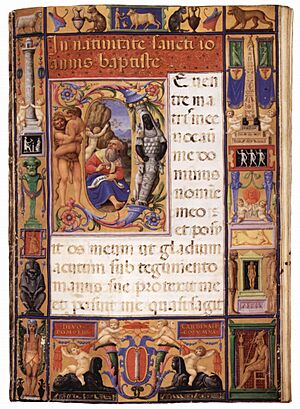 In natiuitate sancti io
annis baptiste
E uen
tre ma
tris mee
uocauit
me do
minus
nomie
meo :
et posu
it os meum ut gladium
acutum sub tegumento
manus sue protexit me
et posuit me quasi sagit
DIVO
POMPEIO
CARDINALI
COLVMNA